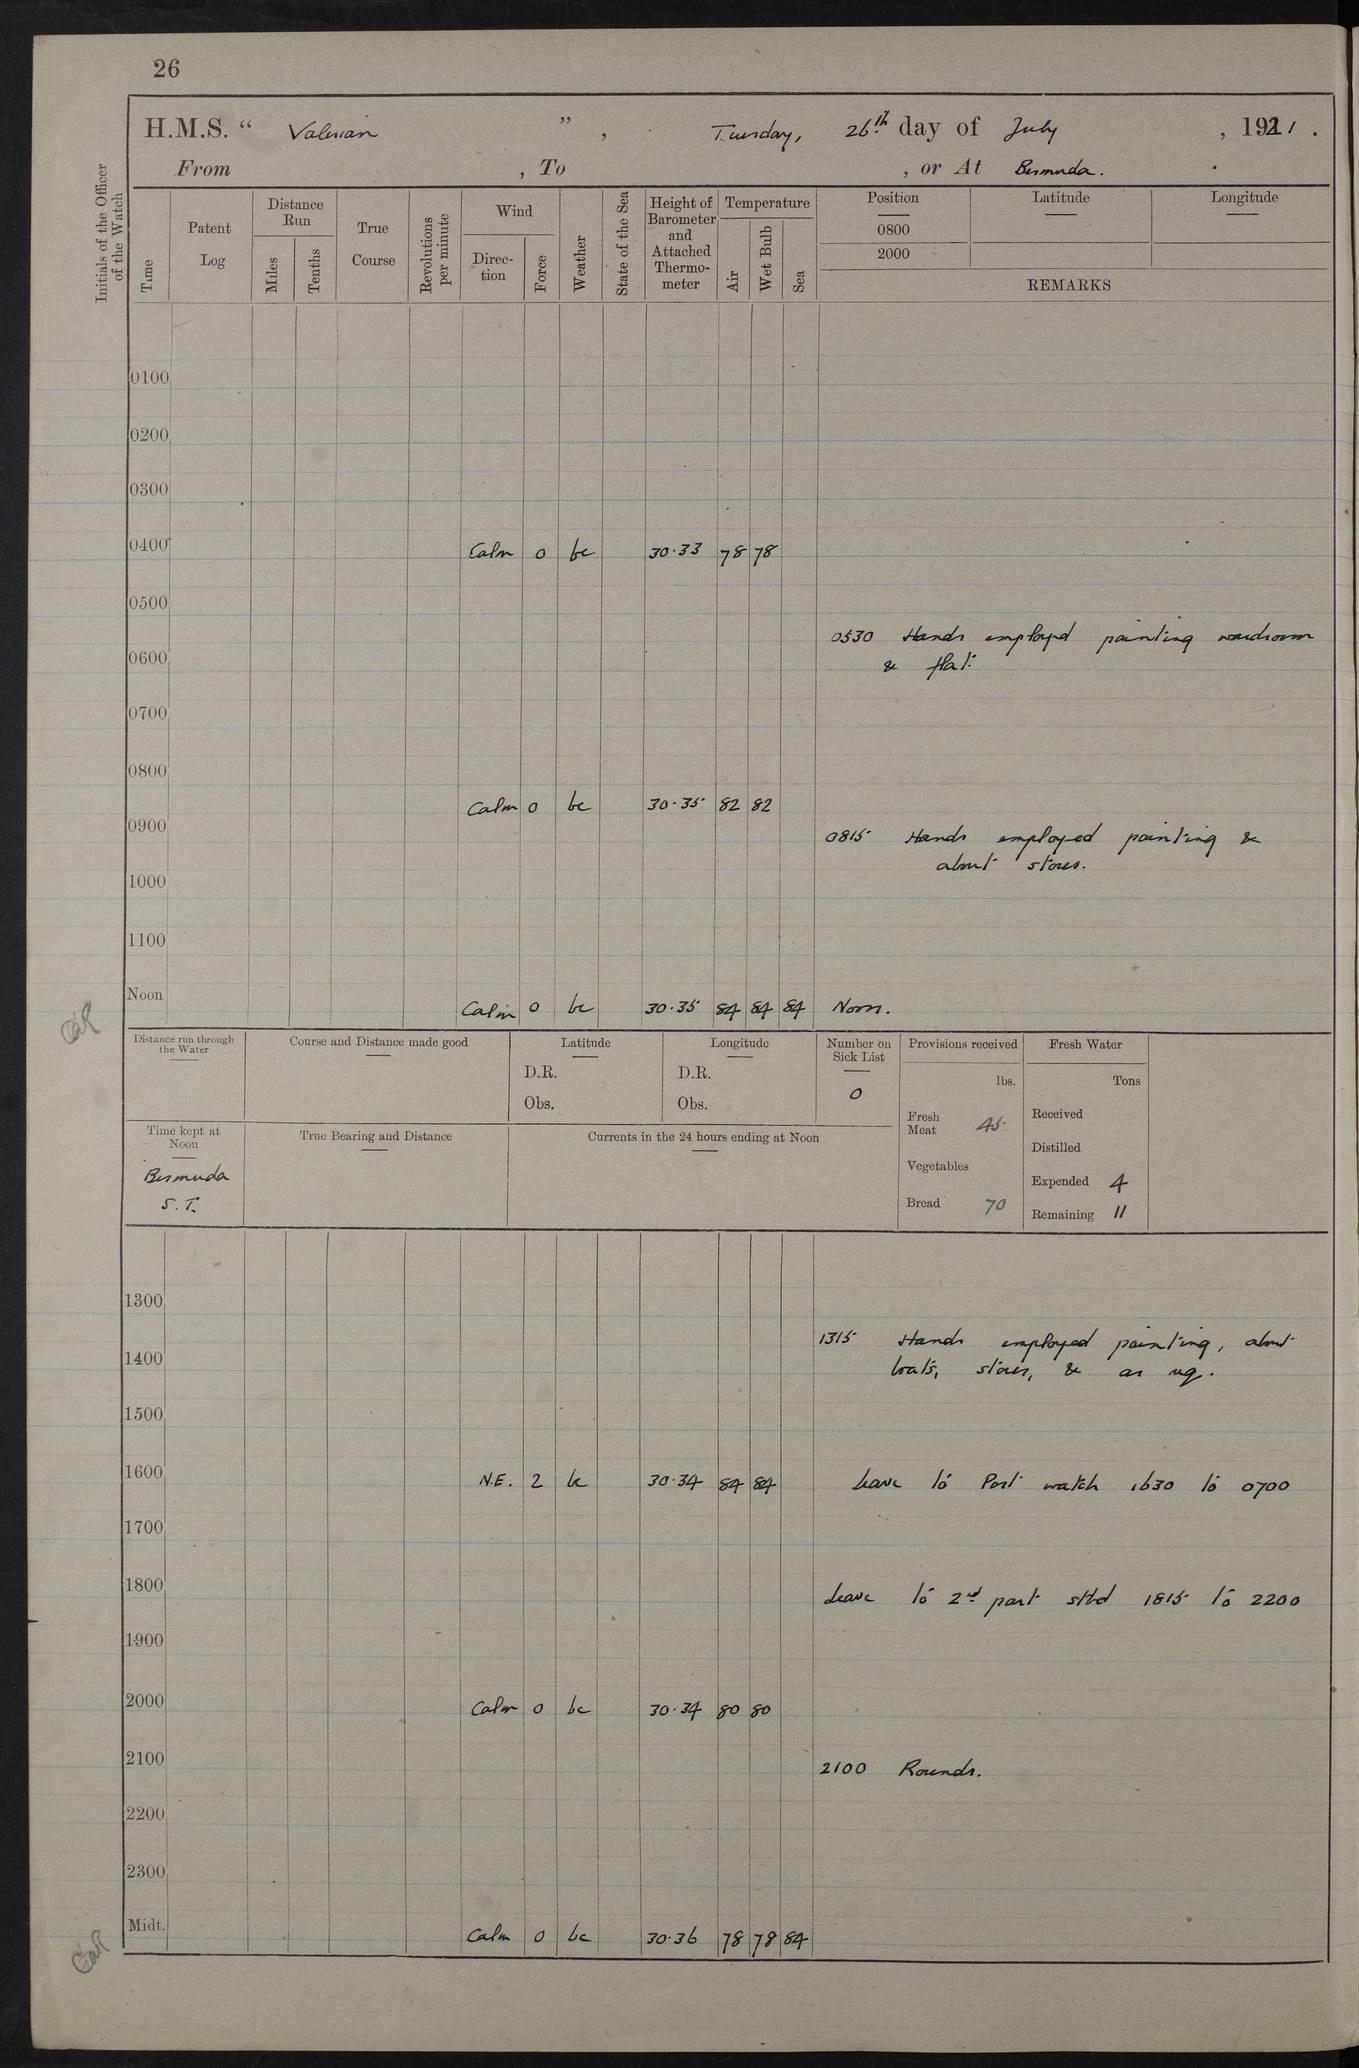 26
H.M.S. “ Valerian ” , Tuesday, 26th day of July , 1921 .
From , To , or At Bermuda.
Initials of the Officer of the Watch
Time
Patent Log
Distance Run
Miles
Tenths
True Course
Revolutions per minute
Wind
Direc-tion
Force
Weather
State of the Sea
Height of Barometer and Attached Thermo-meter
Temperature
Air
Wet Bulb
Sea
Position
0800
2000
Latitude
Longitude
REMARKS
0100
0200
0300
0400 Calm 0 bc 30.33 78 78
0500
0530 Hands employed painting wardroom
0600 & flat.
0700
0800 Calm 0 bc 30.35 82 82
0900 0815 Hands employed painting &
about stores.
1000
1100
Noon Calm 0 bc 30.35 84 84 84 Noon.
Distance run through the Water
Course and Distance made good
Latitude
D.R.
Obs.
Longitude
D.R.
Obs.
Number on Sick List
0
Provisions received
lbs.
Fresh Meat 45
Vegetables
Bread 70
Fresh Water
Tons
Received
Distilled
Expended 4
Remaining 11
Time kept at Noon
Bermuda
S.T.
True Bearing and Distance
Currents in the 24 hours ending at Noon
1300
1315 Hands employed painting, about
1400 boats, stores, & as req.
1500
1600 N.E. 2 bc 30.34 84 84 Leave to Port watch 1630 to 0700
1700
1800 Leave to 2nd part stbd 1815 to 2200
1900
2000 Calm 0 bc 30.34 80 80
2100 2100 Rounds.
2200
2300
Midt. Calm 0 bc 30.36 78 78 84